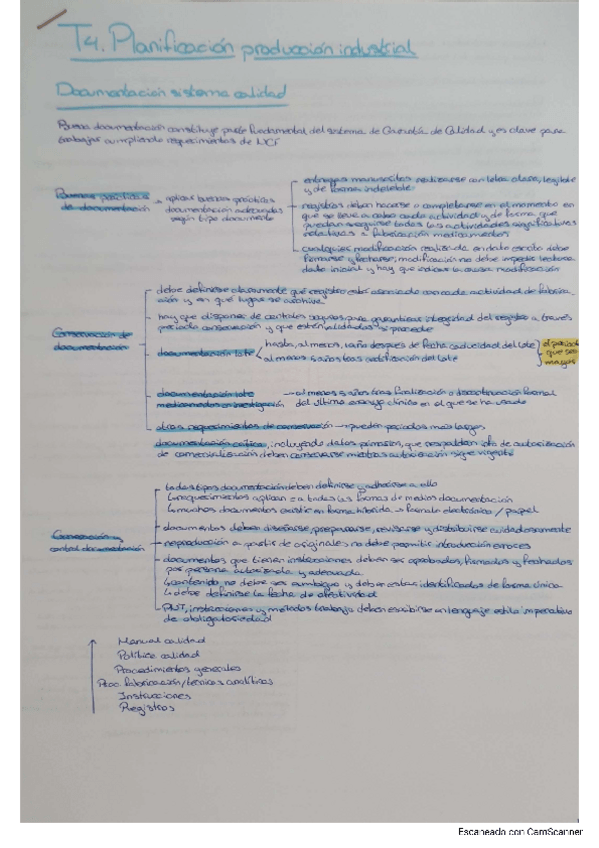 T4. Planificación producción industrial
Documentación sistema calidad
Buena documentación constituye parte fundamental del sistema de Garantía de Calidad y es clave para
trabajar cumpliendo requerimientos de NCF
Buenas prácticas
de documentación
aplicar buenas prácticas
documentación adecuadas
según tipo documento
entregas manuscritas realizarse con letra clara, legible
y de forma indeleble
registros deben hacerse o completarse en el momento en
que se lleva a cabo cada actividad y de forma que
puedan seguirse todas las actividades significativas
relativas a fabricación medicamentos
cualquier modificación realizada en dato escrito debe
firmarse y fecharse; modificación no debe impedir lectura
dato inicial y hay que indicar la causa modificación
Conservación de
documentación
debe definirse claramente qué registro está asociado con cada actividad de fabrica-
ción y en qué lugar se archiva
hay que disponer de controles seguros para garantizar integridad del registro a través
periodo conservación y que estén validados si procede
documentación lote
hasta, al menos, 1 año después de fecha caducidad del lote
al menos 5 años tras certificación del lote
el periodo
que sea
mayor
documentación lote
medicamentos en investigación
→ al menos 5 años tras finalización o discontinuación formal
del último ensayo clínico en el que se ha usado
otros requerimientos de conservación → pueden periodos más largos
documentación crítica, incluyendo datos primarios, que respaldan info de autorización
de comercialización deben conservarse mientras autorización sigue vigente
Generación y
control documentación
todos tipos documentación deben definirse y adherirse a ello
↳ requerimientos aplican = a todas las formas de medios documentación
↳ muchos documentos existir en forma híbrida → formato electrónico / papel
documentos deben diseñarse, prepararse, revisarse y distribuirse cuidadosamente
reproducción a partir de originales no debe permitir introducción errores
documentos que tienen instrucciones deben ser aprobados, firmados y fechados
por persona autorizada y adecuada
↳ contenido no debe ser ambiguo y deben estar identificados de forma única
↳ debe definirse la fecha de efectividad
PNT, instrucciones y métodos trabajo deben escribirse en lenguaje estilo imperativo
de obligatoriedad
Manual calidad
Política calidad
Procedimientos generales
Proc. fabricación/técnicas analíticas
Instrucciones
Registros
Escaneado con CamScanner